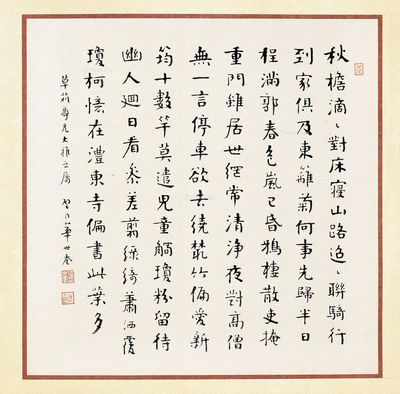 秋檐滴〻對床寢山路迢〻聯騎行
到家俱及東籬菊何事先歸半日
程滿郭春色嵐已昏鴉棲散吏掩
重門雖居世網常清淨夜對高僧
無一言停車欲去繞叢竹偏愛新
筠十數竿莫遣兒童觸瓊粉留待
幽人迴日看參差剪綵綺蕭洒覆
瓊柯憶在澧東寺偏書此葉多
尊兄大雅之屬